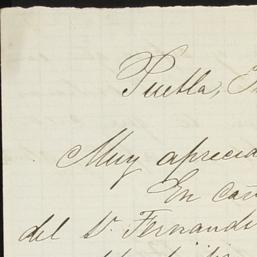 Puebla,
Muy aprecia
En
del Sr. Fernand